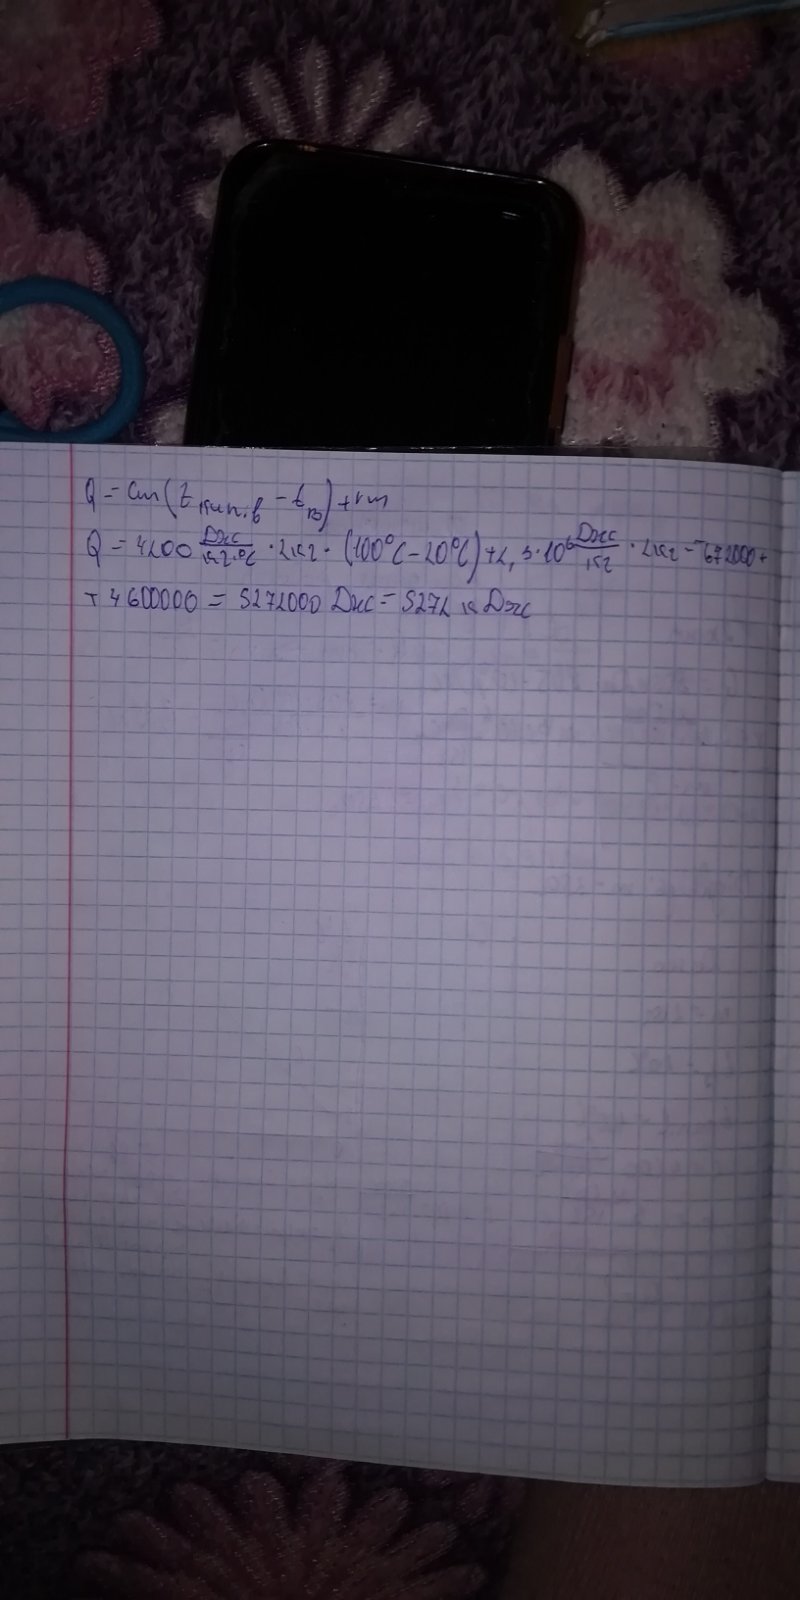 Q = cm(tкип.в - tв) + rm
Q = 4200 Дж/кг·°C · 2кг · (100°C - 20°C) + 2,3·10⁶ Дж/кг · 2кг = 672000 +
+ 4600000 = 5272000 Дж = 5272 кДж